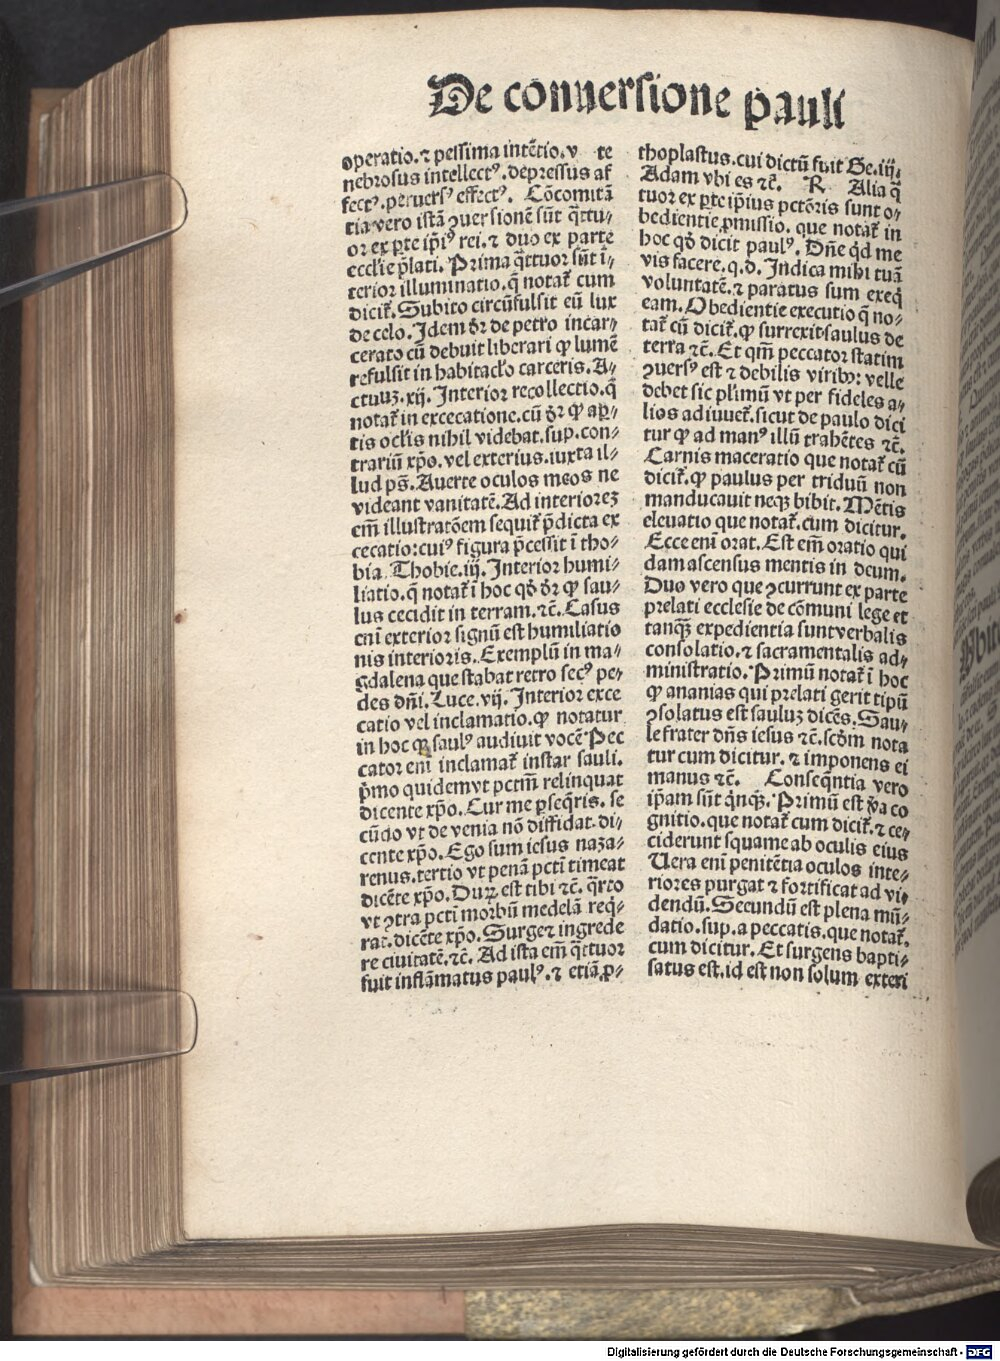 De conuersione pauli
operatio.⁊ pessima intẽtio.v te
nebrosus intellectꝰ.depressus af
fectꝰ.peruersꝰ effectꝰ. Cõcomitã
tia vero istã ꝯuersionẽ sũt q̃ttu⸗
or ex ꝑte ip̃iꝰ rei.⁊ duo ex parte
eccl'ie p̃lati. Prima q̃ttuor sũt ĩ⸗
terior illuminatio.q̃ notat᷑ cum
dicit᷑.Subito circũfulsit eũ lux
de celo.Idem dr̃ de petro incar⸗
cerato cũ debuit liberari ꝙ lumẽ
refulsit in habitacl'o carceris.A⸗
ctuuꝫ.xij.Interior recollectio.q̃
notat᷑ in excecatione.cũ dr̃ ꝙ aꝑ⸗
tis ocl'is nihil videbat.sup.con⸗
trariũ xp̃o.vel exterius.iuxta il⸗
lud ps̃.Auerte oculos meos ne
videant vanitatẽ.Ad interiorẽ
em̃ illustratõem sequit᷑ p̃dicta ex
cecatio:cuiꝰ figura p̃cessit ĩ tho⸗
bia.Thobie.iij.Interior humi⸗
liatio.q̃ notat᷑ ĩ hoc qd̃ dr̃ ꝙ sau⸗
lus cecidit in terram.⁊c̃.Casus
eni exterior signũ est humiliatio
nis interioris.Exemplũ in ma⸗
gdalena que stabat retro secꝰ pe⸗
des dñi.Luce.vij.Interior exce
catio vel inclamatio.ꝙ notatur
in hoc ꝙ saulꝰ audiuit vocẽ Pec
cator eni inclamat᷑ instar sauli.
p̃mo quidem vt pctm̃ relinquat
dicente xp̃o.Cur me ꝑseq̃ris.se
cũdo vt de venia nõ diffidat.di⸗
cente xp̃o.Ego sum iesus naza⸗
renus.tertio vt penã pcti timeat
dicẽte xp̃o.Duꝝ est tibi ⁊c̃.q̃rto
vt ꝯtra pcti morbũ medelã req̃⸗
rat.dicẽte xp̃o.Surge ⁊ ingrede
re ciuitatẽ.⁊c̃.Ad ista em̃ q̃ttuor
fuit inflãmatus paulꝰ.⁊ etiã.ꝓ⸗
thoplastus.cui dictũ fuit Ge.iij.
Adam vbi es ⁊c̃. R Alia q̃
tuor ex ꝑte ip̃ius pctõris sunt o⸗
bedientie ꝓmissio.que notat᷑ in
hoc qd̃ dicit paulꝰ.Dñe qd̃ me
vis facere.q.d.Indica mihi tuã
voluntatẽ.⁊ paratus sum exeq̃
eam.Obedientie executio q̃ no⸗
tat᷑ cũ dicit᷑.ꝙ surrexit saulus de
terra ⁊c̃.Et qm̃ peccator statim
ꝯuersꝰ est ⁊ debilis viribꝰ: velle
debet sic pl'imũ vt per fideles a⸗
lios adiuuet᷑.sicut de paulo dici
tur ꝙ ad manꝰ illũ trahẽtes ⁊c̃.
Carnis maceratio que notat᷑ cũ
dicit᷑.ꝙ paulus per triduũ non
manducauit neqꝫ bibit.Mẽtis
eleuatio que notat᷑.cum dicitur.
Ecce eni orat.Est em̃ oratio qui
dam ascensus mentis in deum.
Duo vero que ꝯcurrunt ex parte
prelati ecclesie de cõmuni lege et
tanqꝫ expedientia sunt verbalis
consolatio.⁊ sacramentalis ad⸗
ministratio.Primũ notat᷑ ĩ hoc
ꝙ ananias qui prelati gerit tipũ
ꝯsolatus est sauluꝫ dicẽs.Sau⸗
le frater dñs iesus ⁊c̃.scd̃m nota
tur cum dicitur.⁊ imponens ei
manus ⁊c̃. Conseq̃ntia vero
ip̃am sũt q̃nqꝫ.Primũ est ṽa co
gnitio.que notat᷑ cum dicit᷑.⁊ ce⸗
ciderunt squame ab oculis eius
Uera eni penitẽtia oculos inte⸗
riores purgat ⁊ fortificat ad vi⸗
dendũ.Secundũ est plena mũ⸗
datio.sup.a peccatis.que notat᷑.
cum dicitur.Et surgens bapti⸗
satus est.id est non solum exteri
Digitalisierung gefördert durch die Deutsche Forschungsgemeinschaft - DFG